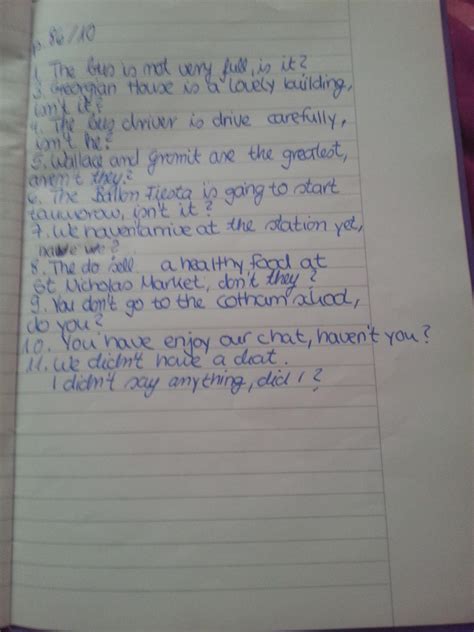 p. 86/10
1. The bus is not very full, is it?
3. Georgian House is a lovely building,
isn't it?
4. The bus driver is drive carefully,
isn't he?
5. Wallace and Gromit are the greatest,
aren't they?
6. The Ballon Fiesta is going to start
toumorow, isn't it?
7. We haven't arrive at the station yet,
have we?
8. The do sell a healthy food at
St. Nicholas Market, don't they?
9. You don't go to the Cotham shool,
do you?
10. You have enjoy our chat, haven't you?
11. We didn't have a chat.
I didn't say anything, did I?